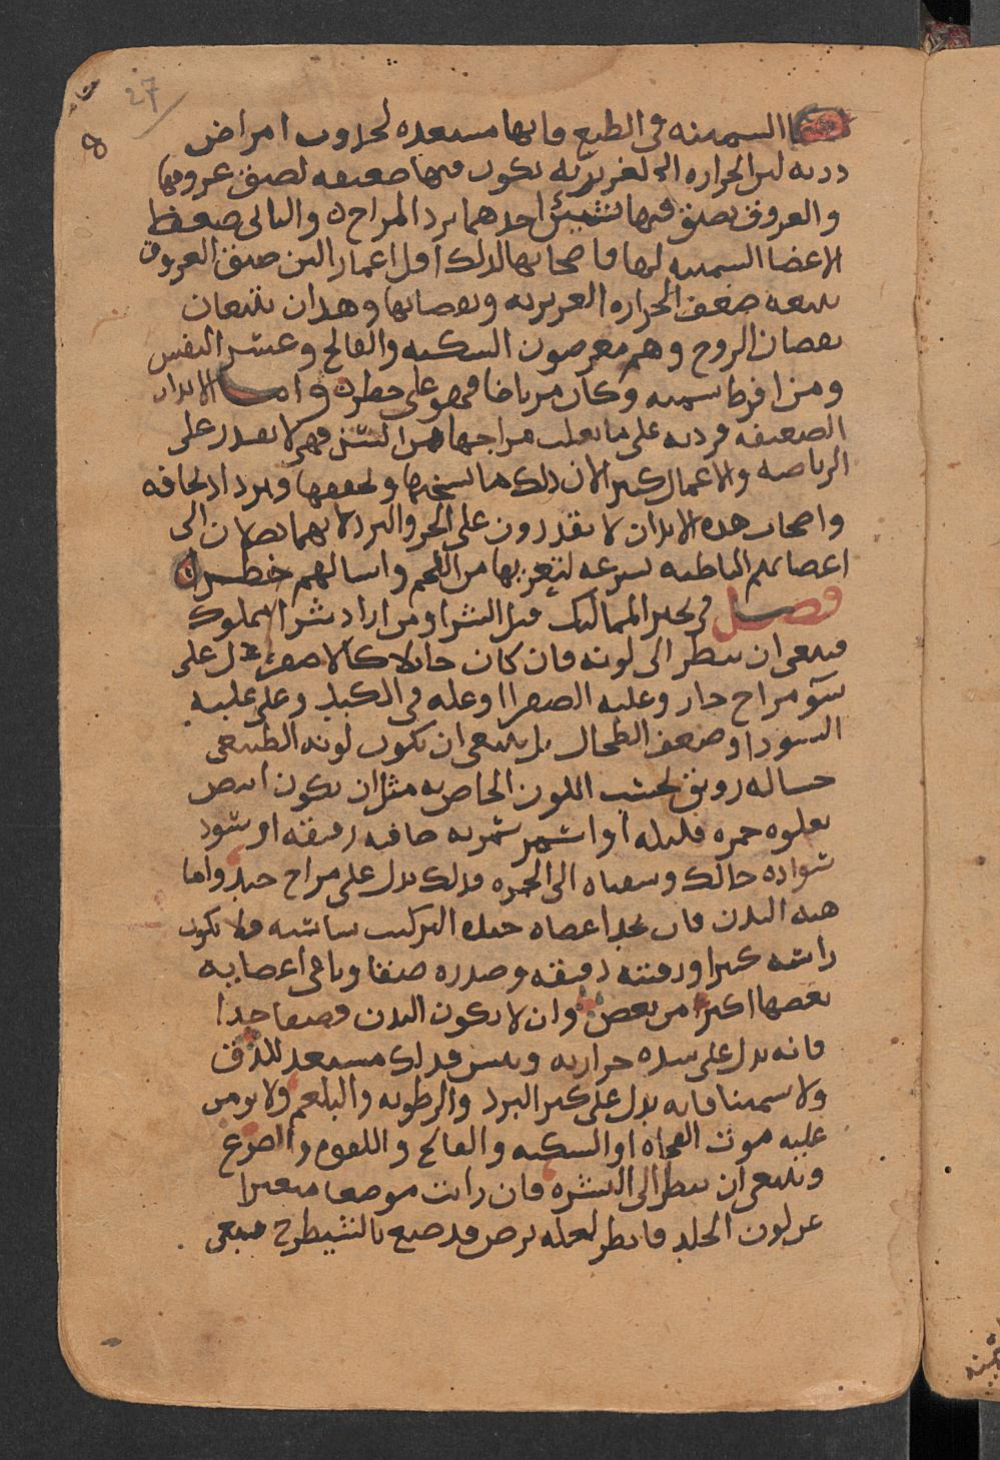 27
8
السمينه في الطبع فانها مستعده لحدوث امراض
رديه لان الحراره الغريزيه تكون فيها ضعيفه لضيق عروقها
والعروق تضيق فيها لشيئين احدهما برد المزاج والثاني ضغط
الاعضا السمينه لها فاصحابها لذلك اقل اعمارا لان ضيق العروق
يتبعه ضعف الحراره الغريزيه ونقصانها وهذان يتبعان
نقصان الروح وهم معرضون السكته والفالج وعسر النفس
ومن افرط سمنه وكان مرتاضا فهو على خطر واما الابدان
الضعيفه فرديه على ما يغلب مزاجها من فهي لا تقدر على
الرياضه والاعمال كثير لان ذلك ما يسخنها ويجففها ويزداد نحافه
واصحاب هذه الابدان لا يقدرون على الحر والبرد لانهما يصلان الى
اعضائهم الباطنه بسرعه لتعريها من اللحم وامثالهم خطر
فصل في تخير المماليك قبل الشرا ومن اراد شرا المملوك
فينبغي ان ينظر الى لونه فان كان حايلا كالاصفر دل على
سو مزاج حار وغلبه الصفرا او عله في الكبد وعلى غلبه
السودا وضعف الطحال بل ينبغي ان يكون لونه الطبيعي
حسنا له رونق بحسب اللون الخاص به مثل ان يكون ابيض
يعلوه حمره قليله او اسمر سمره صافيه رقيقه او اسود
سواده حالك وشفتاه الى الحمره فذلك يدل على مزاج جيد واما
هيه البدن فان تجد اعضاه جيده التركيب متناسبه ولا يكون
راسه كبيرا ورقبته دقيقه وصدره ضيقا وباقي اعضايه
بعضها اكبر من بعض وان لا يكون البدن قصيفا جدا
فانه يدل على شده حراره ويبس فذلك مستعد للدق
ولا سمينا فانه يدل على كثر البرد والرطوبه والبلغم ولا يومن
عليه موت الفجاه او السكته والفالج واللقوه والصرع
وينبغي ان ينظر الى البشره فان رايت موضعا متغيرا
عن لون الجلد فانظر لعله برص قد صبغ بالشيطرج فينبغي